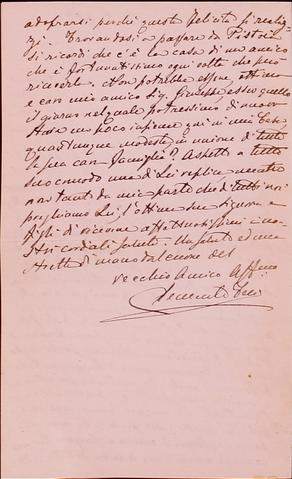 adoprarsi perché questa felicità si realiz-
zi. Trovandosi a passare da Pistoia
si ricordi che c'è la casa di un amico
che è fortunatissimo ogni volta che può
riceverlo. Non potrebbe essere, ottimo
e caro mio amico Sig. Giuseppe esso quello
il giorno nel quale potessimo di nuovo
stare un poco insieme qui in mia casa,
quantunque modesta, in unione di tutta
la sua cara famiglia? Aspetto a tutto
suo comodo una di Lei replica mentre
non tanto da mia parte che di tutti noi
preghiamo Lei l'ottima sua Signora e
figli di riceverne affettuosissimi i no-
stri cordiali saluti. Un saluto ed una
stretta di mano dal cuore del
vecchio Amico Aff.mo